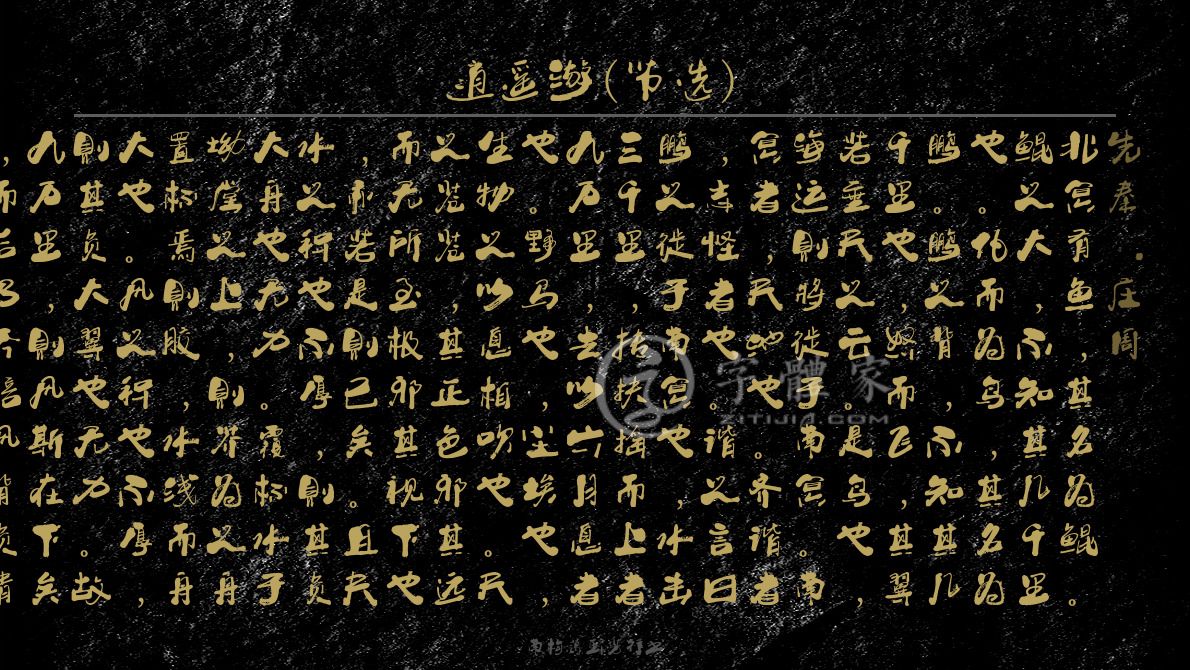 逍遥游(节选)
先秦.庄周
北冥有鱼，其名为鲲。
鲲之大，不知其几千里
也。化而为鸟，其名为
鹏。鹏之背，不知其几
千里也，怒而飞，其翼
若垂天之云。是鸟也，
海运則将徙于南冥。南
冥者，天池也。齐谐者
，志怪者也。谐之言曰
鹏之徙于南冥也，水击
三千里，抟扶摇而上者
九万里，去以六月息者
也。野马也，尘埃也，
生物之以息相吹也。天
之苍苍，其正色邪其远
而无所至极邪其视下也
，亦若是則已矣。且夫
水之积也不厚，則其负
大舟也无力。覆杯水于
坳堂之上，則芥为之舟
置杯焉則胶，水浅而舟
大也。风之积也不厚，
則其负大翼也无力。故
九万里，則风斯在下矣
，而后乃今培风背负青
字體家
XITIJIA.COM